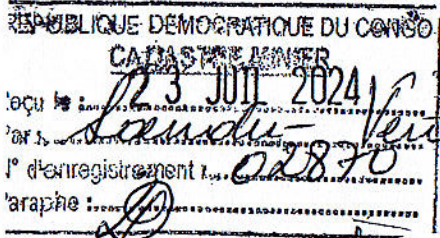 REPUBLIQUE DEMOCRATIQUE DU CONGO
CADASTRE MINIER
eçu le : 23 JUIL 2024
Par :
N° d'enregistrement : 02870
Paraphe :